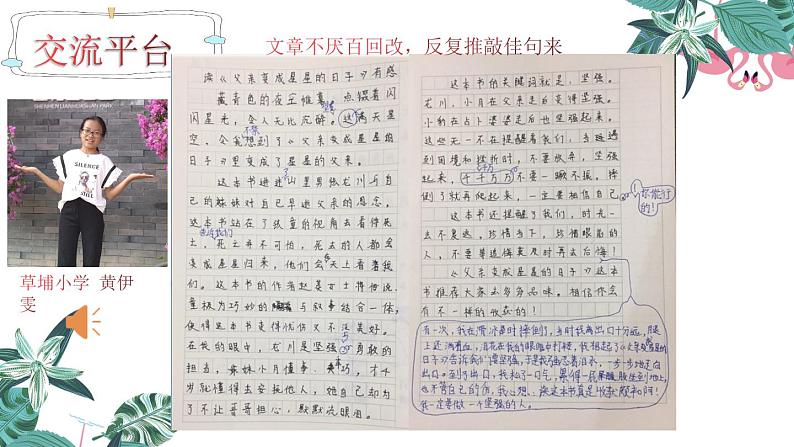 交流平台
文章不厌百回改，反复推敲佳句来
SHENZHEN LIANHUASHAN PARK
SILENCE
草埔小学 黄伊
雯
读《父亲变成星星的日子》有感
藏青色的夜空帷幕，点缀着闪
闪星光，令人无比沉醉。这满天星
空，令我想到了《父亲变成星星的
日子》里变成了星星的父亲。
不禁
这本书讲述了山里男孩龙川与自
己的妹妹对自已早逝父亲的思念。
这本书站在了孩童的视角去看待死
告诉我们
亡，死亡并不可怕，死去的人都会
变成星星归来，他们会在天上看着我
们。这本书的作者赵
极为巧妙的 与叙事结合一体，
使得这本书显得忧伤又不失美好。
在我的眼中，龙川是坚强、勇敢的
担当，妹妹小月懂事、 巧，才十
岁就懂得去安抚他人，她自己却为
了不让哥哥担心，默默流眼泪。
这本书的关键词就是，坚强。
龙川，小月在父亲走后变得坚强。
小豹在占卜婆婆走后也坚强起来。
这些无一不在提醒着我们，当碰遇
到困境和挫折时，不要放弃，坚强
起来，千千万万不要一蹶不振。摔
千万
倒了就再爬起来，一定要相信自己
你能行
的！
这本书还提醒了我们，时光一
去不复返。珍惜当下，珍惜眼前的
人，不要等追悔莫及时再去后悔！
《父亲变成星星的日子》这本
书推荐大家去多多品味。相信你会
有不一样的收获的！
有一次，我在滑冰是时摔倒了，当时我离出口十分远，腿
上还淌着血，泪花在我的眼眶中打转，我想起了《父亲变成星星的
日子》告诉我们要坚强，于是我强忍着泪水，一步一步地走向
出口。到了出口，我松了一口气，累得一屁股坐到地上，
也不管自己的伤，我心想：读这本书真是收获颇丰阿！
我一定要做一个坚强的人。